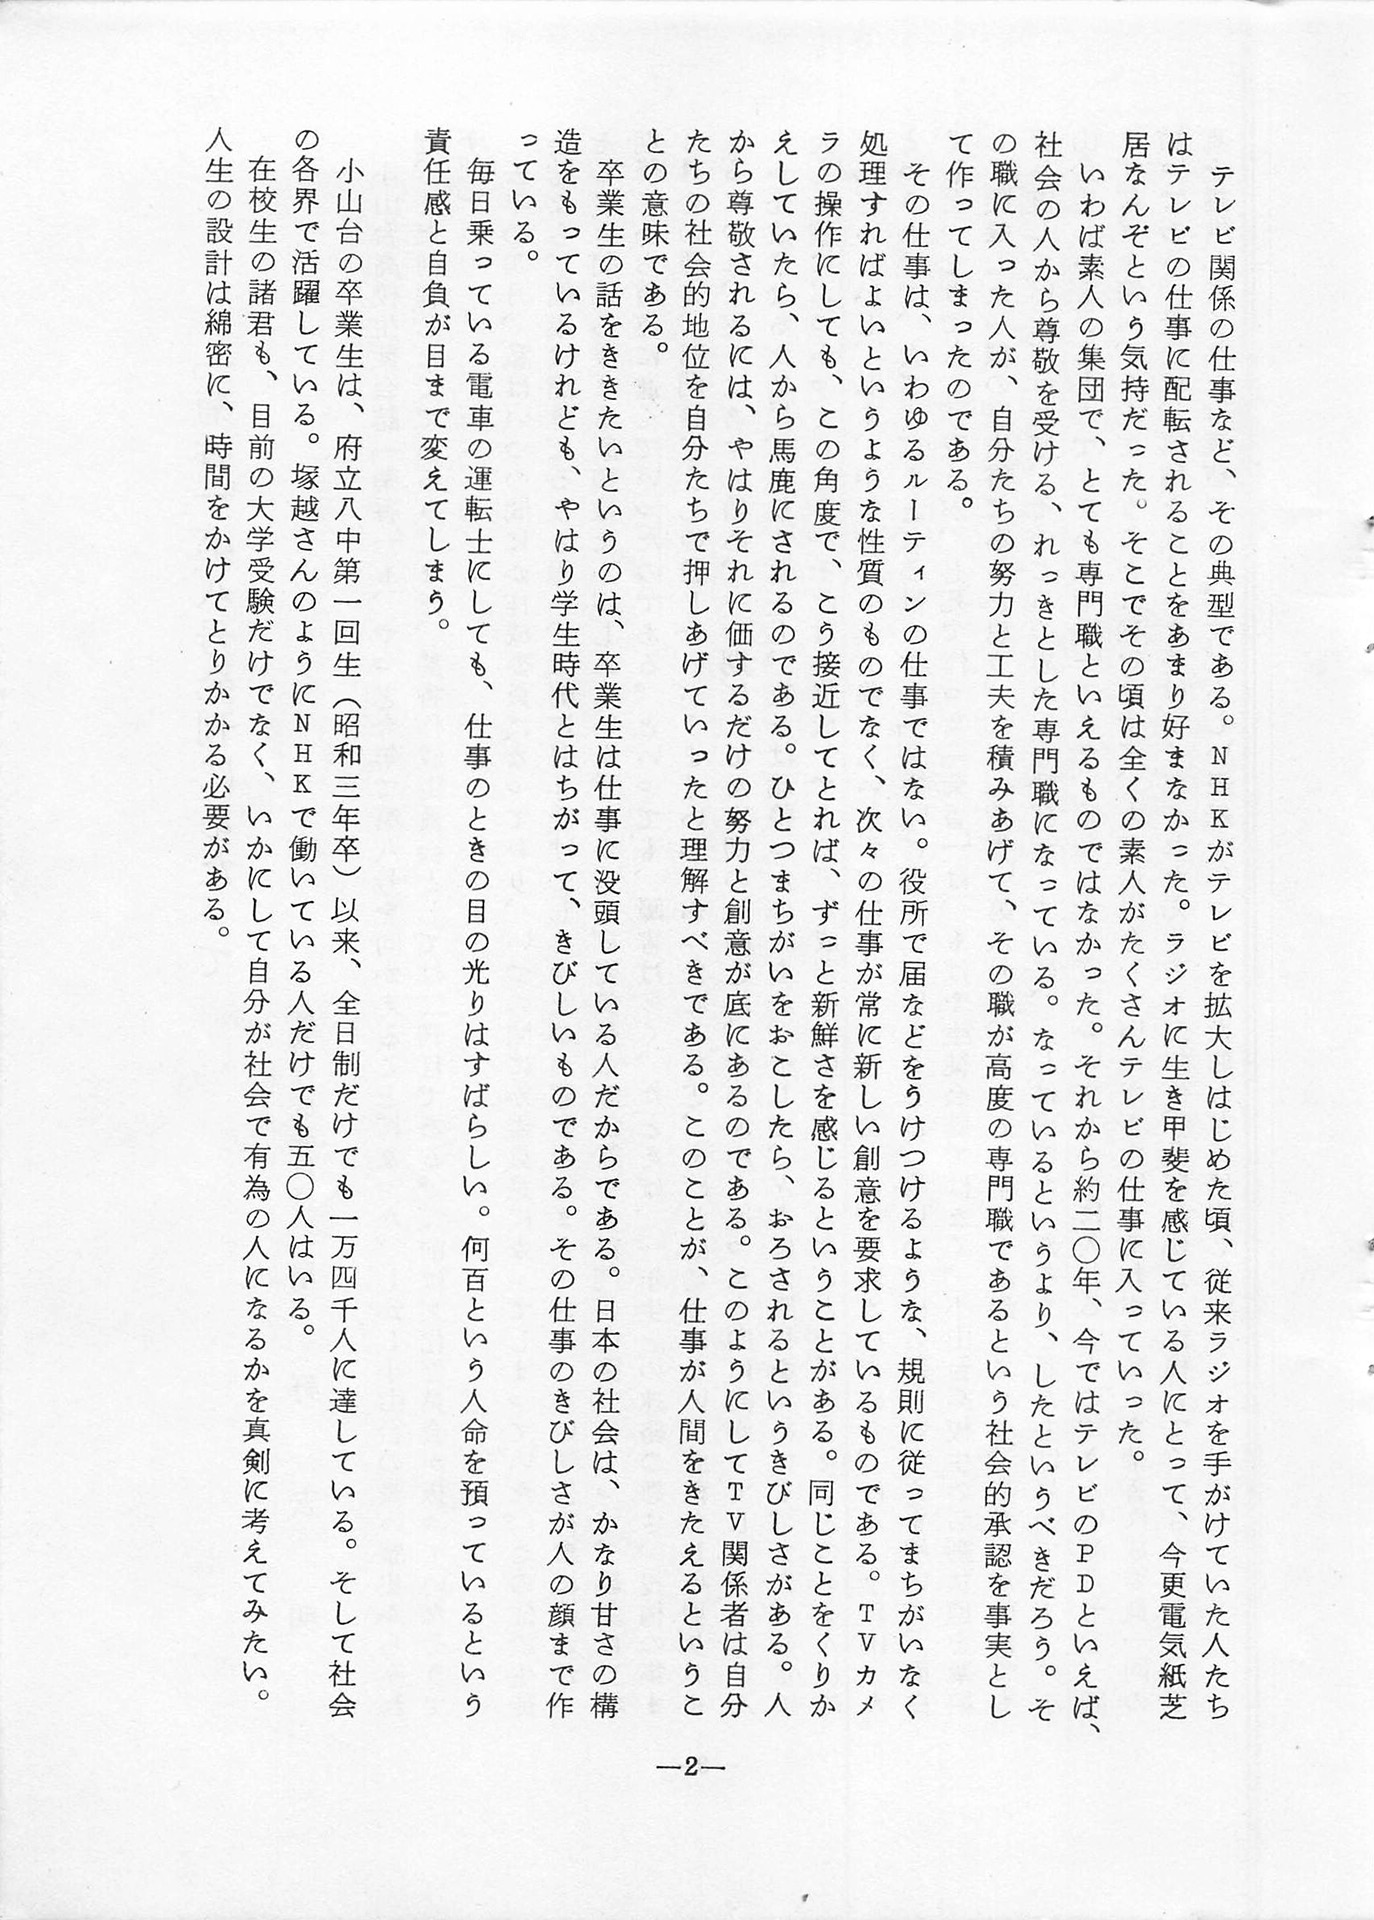 テレビ関係の仕事など、その典型である。NHKがテレビを拡大しはじめた頃、従来ラジオを手がけていた人たち
はテレビの仕事に配転されることをあまり好まなかった。ラジオに生き甲斐を感じている人にとって、今更電気紙芝
居なんぞという気持だった。そこでその頃は全くの素人がたくさんテレビの仕事に入っていった。
いわば素人の集団で、とても専門職といえるものではなかった。それから約二〇年、今ではテレビのPDといえば、
社会の人から尊敬を受ける、れっきとした専門職になっている。なっているというより、したというべきだろう。そ
の職に入った人が、自分たちの努力と工夫を積みあげて、その職が高度の専門職であるという社会的承認を事実とし
て作ってしまったのである。
その仕事は、いわゆるルーティンの仕事ではない。役所で届などをうけつけるような、規則に従ってまちがいなく
処理すればよいというような性質のものでなく、次々の仕事が常に新しい創意を要求しているものである。TVカメ
ラの操作にしても、この角度で、こう接近してとれば、ずっと新鮮さを感じるということがある。同じことをくりか
えしていたら、人から馬鹿にされるのである。ひとつまちがいをおこしたら、おろされるというきびしさがある。人
から尊敬されるには、やはりそれに価するだけの努力と創意が底にあるのである。このようにしてTV関係者は自分
たちの社会的地位を自分たちで押しあげていったと理解すべきである。このことが、仕事が人間をきたえるというこ
との意味である。
卒業生の話をききたいというのは、卒業生は仕事に没頭している人だからである。日本の社会は、かなり甘さの構
造をもっているけれども、やはり学生時代とはちがって、きびしいものである。その仕事のきびしさが人の顔まで作
っている。
毎日乗っている電車の運転士にしても、仕事のときの目の光りはすばらしい。何百という人命を預っているという
責任感と自負が目まで変えてしまう。
小山台の卒業生は、府立八中第一回生（昭和三年卒）以来、全日制だけでも一万四千人に達している。そして社会
の各界で活躍している。塚越さんのようにNHKで働いている人だけでも五〇人はいる。
在校生の諸君も、目前の大学受験だけでなく、いかにして自分が社会で有為の人になるかを真剣に考えてみたい。
人生の設計は綿密に、時間をかけてとりかかる必要がある。
—2—